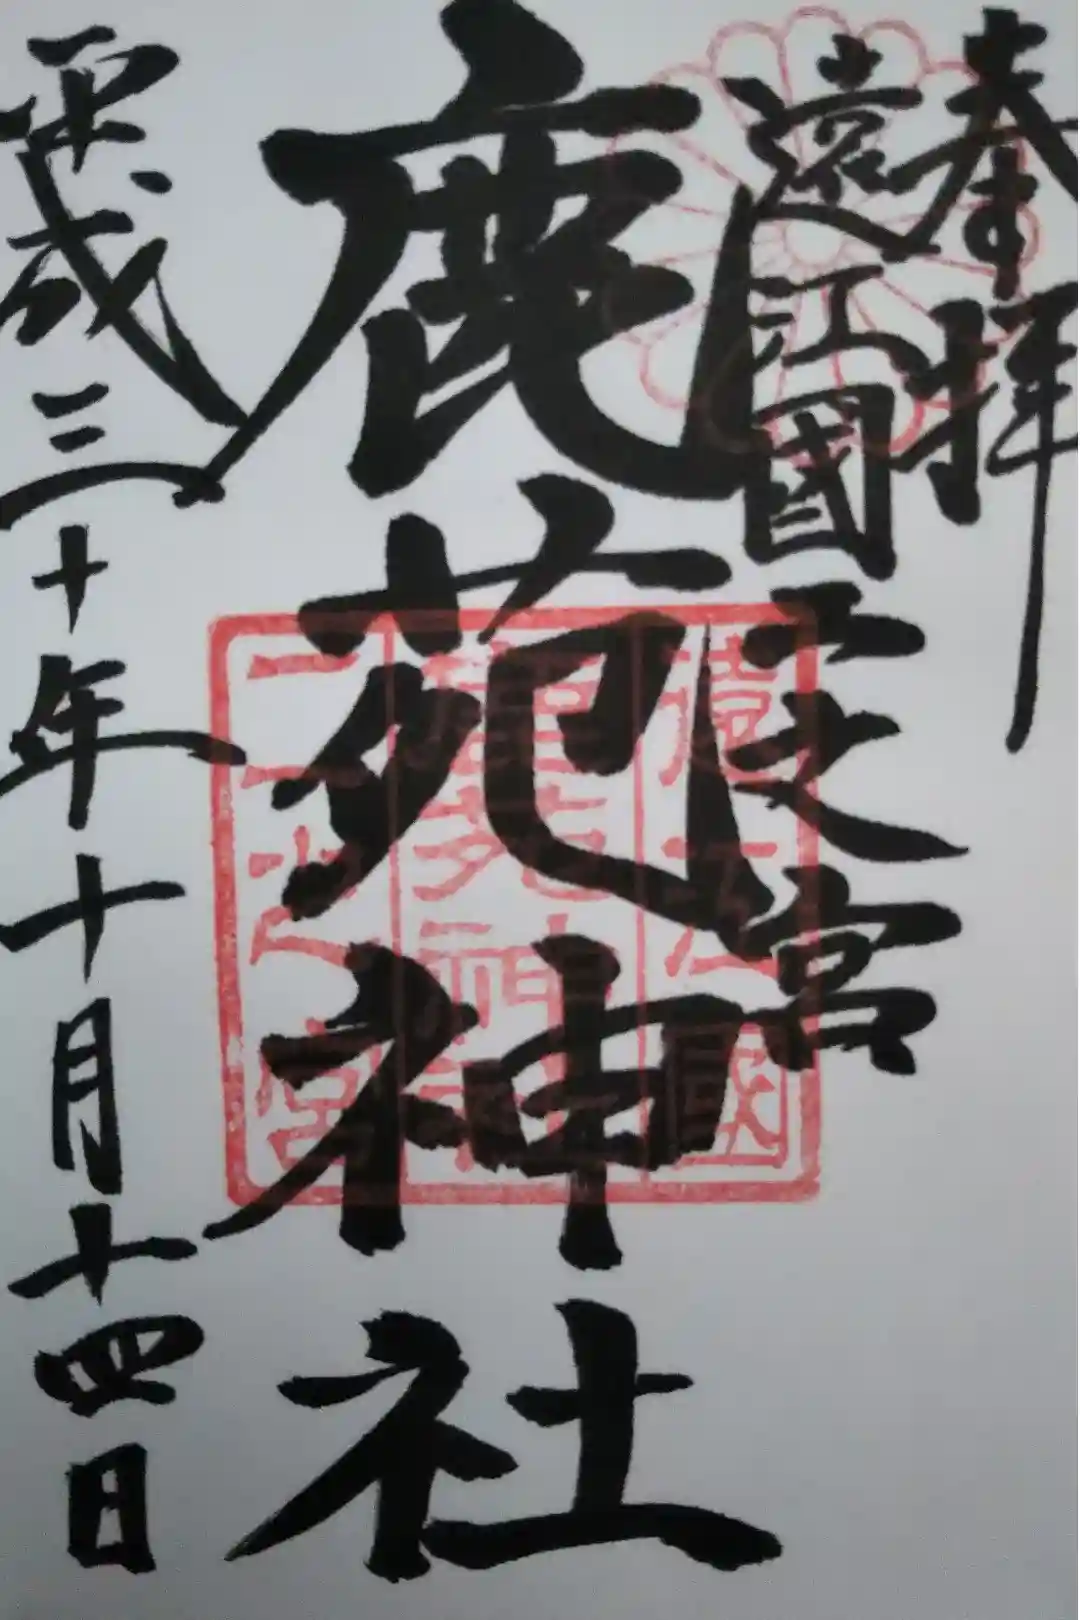 奉拝
遠江國二之宮
鹿苑神社
平成三十年十月十四日
遠江國
鹿苑神社
二之宮